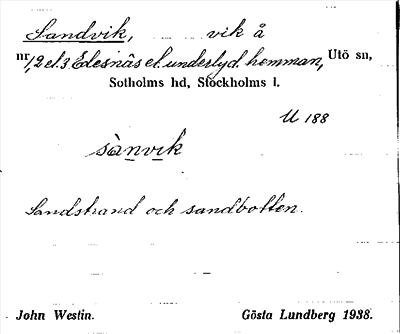 Sandvik, vik å
nr 1, 2 el. 3 Edesnäs el. underlyd. hemman, Utö sn,
Sotholms hd, Stockholms l.
U 188
sànvik
Sandstrand och sandbotten.
John Westin. Gösta Lundberg 1938.